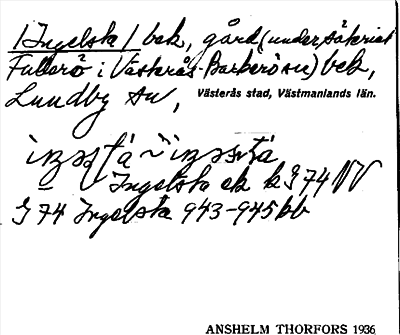 /Ingelsta/ bek, gård (under säteriet
Fullerö i Västerås-Barkarö sn) bek,
Lundby sn, Västerås stad, Västmanlands län.
Ingelsta ek k J 74 NV
J 74 Ingelsta 943-945 bb
ANSHELM THORFORS 1936